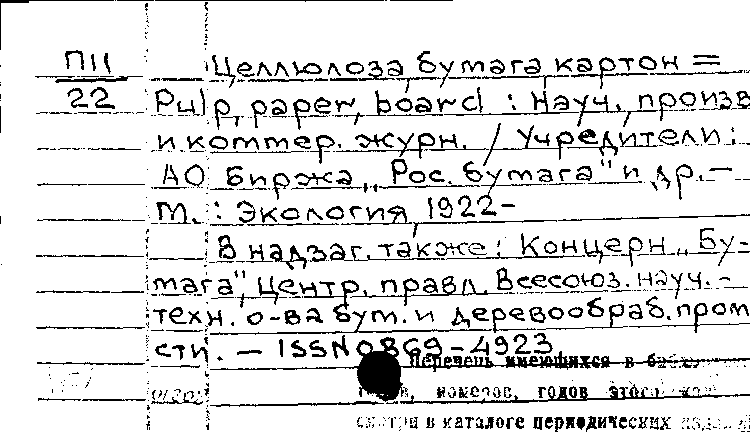 П11
22
Целлюлоза, бумага, картон =
Pulp, paper, board : Науч., произв
и коммер. журн. / Учредители:
АО Биржа „Рос. бумага" и др. —
М. : Экология, 1922-
В надзаг. также: Концерн „Бу-
мага", Центр. правл. Всесоюз. науч.-
техн. о-ва бум. и деревообраб. пром
сти. — ISSN 0869-4923
Перечень имеющихся в
номеров, годов этого
смотри в каталоге периодических